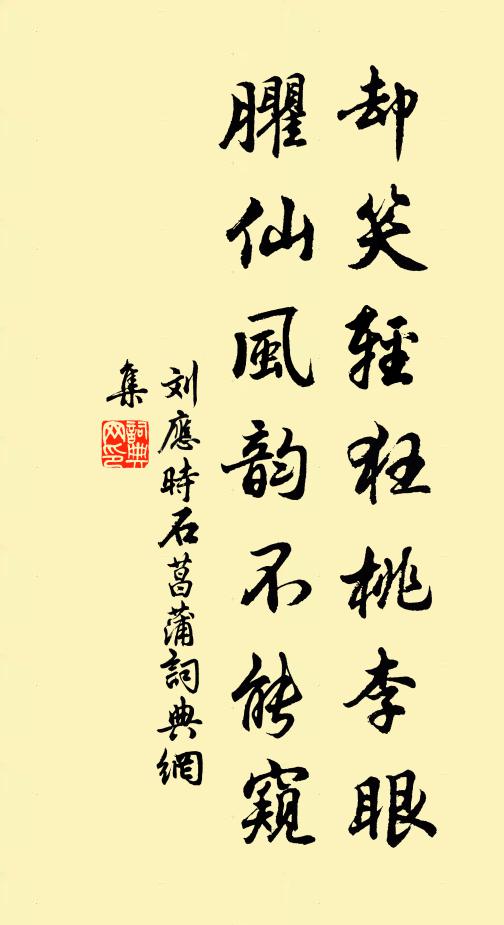 却笑輕狂桃李眼
臞仙風韵不能窺
刘應時石菖蒲詞典網
集
詞典
网印